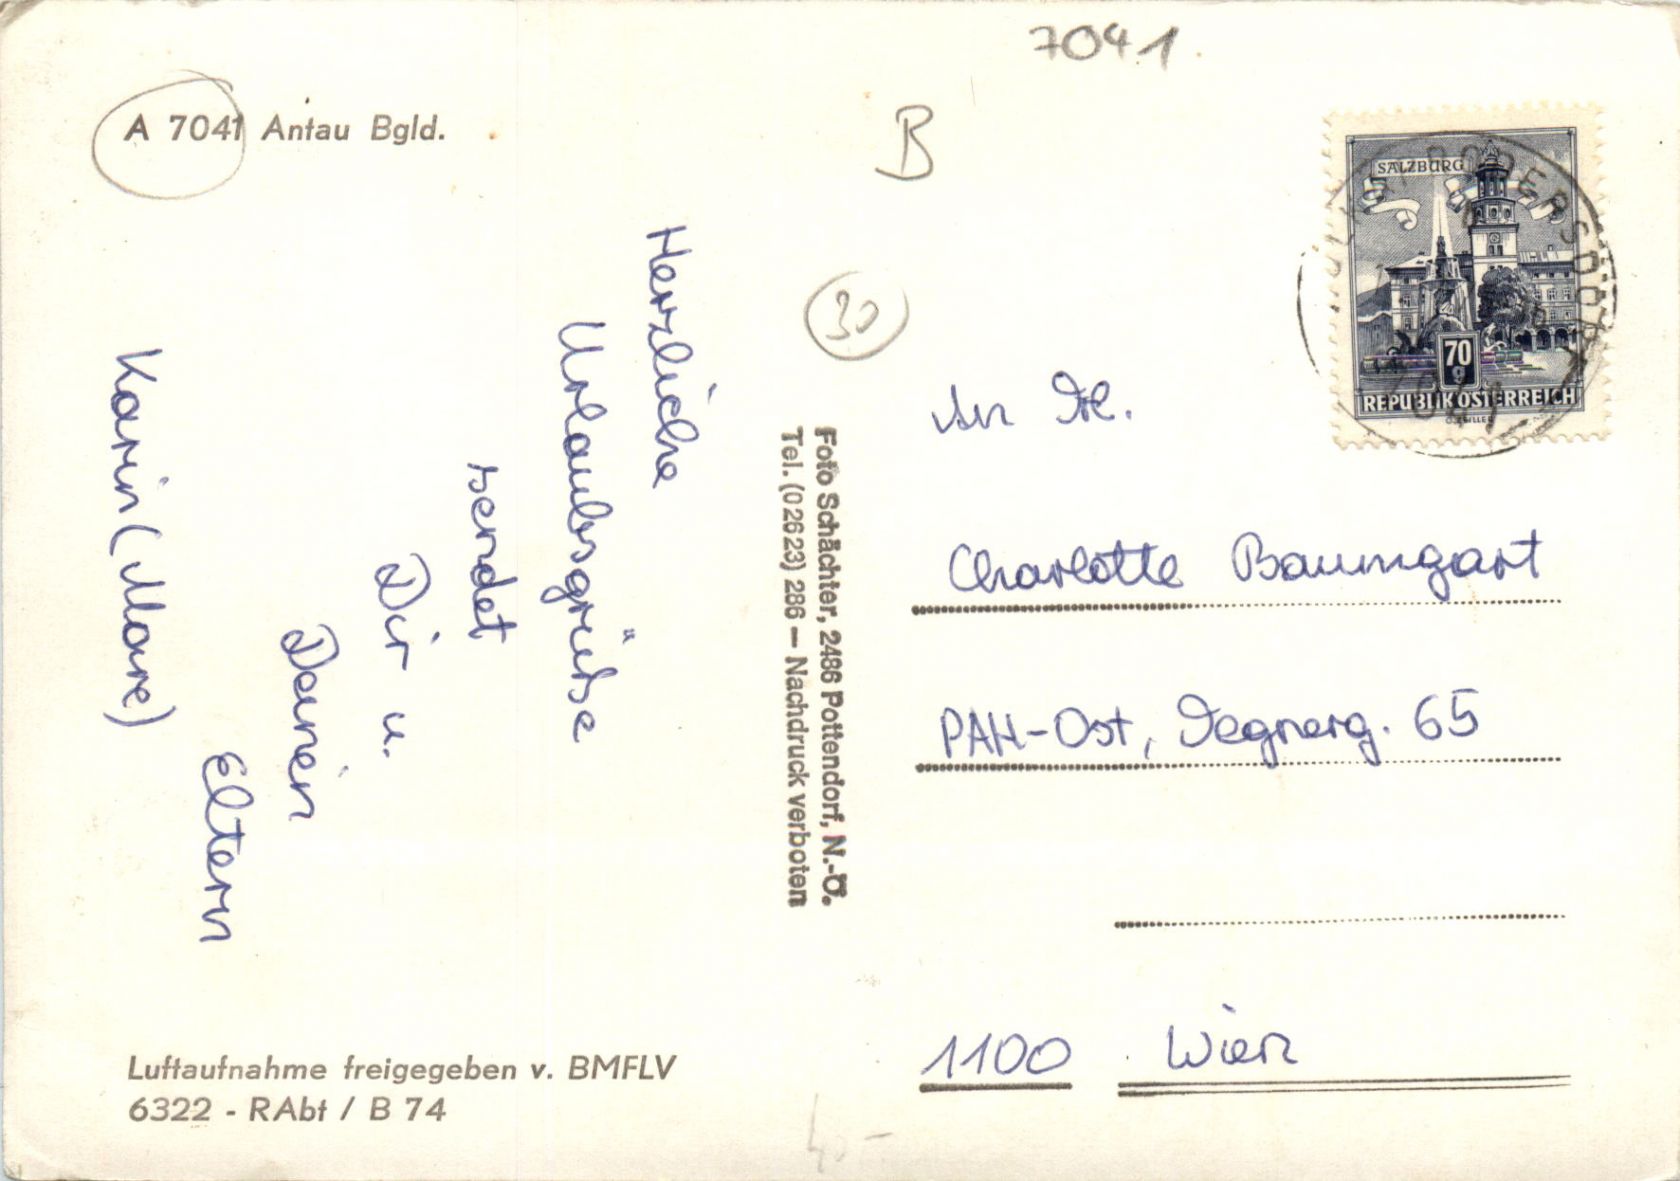 7041
A 7041 Antau Bgld.
B
30
SALZBURG
70
g
REPUBLIK ÖSTERREICH
Herzliche
Urlaubsgrüße
sendet
Dir u.
Deinen
Eltern
Karin (Mare)
Foto Schächter, 2486 Pottendorf, N.-Ö.
Tel. (0 26 23) 286 — Nachdruck verboten
An Frl.
Charlotte Baumgart
PAH-Ost, Degnerg. 65
1100 Wien
Luftaufnahme freigegeben v. BMFLV
6322 - RAbt / B 74